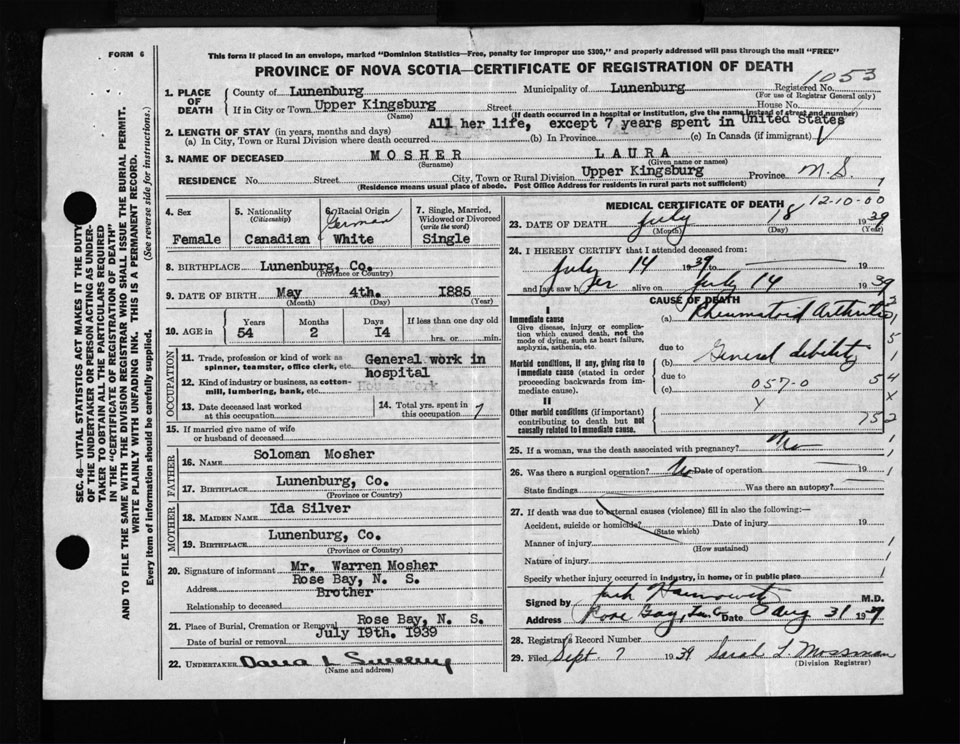 FORM 6
This form if placed in an envelope, marked "Dominion Statistics—Free, penalty for improper use $300," and properly addressed will pass through the mail "FREE"
PROVINCE OF NOVA SCOTIA—CERTIFICATE OF REGISTRATION OF DEATH
1053
SEC. 46—VITAL STATISTICS ACT MAKES IT THE DUTY
OF THE UNDERTAKER OR PERSON ACTING AS UNDER-
TAKER TO OBTAIN ALL THE PARTICULARS REQUIRED
IN THE "CERTIFICATE OF REGISTRATION OF DEATH"
AND TO FILE THE SAME WITH THE DIVISION REGISTRAR WHO SHALL ISSUE THE BURIAL PERMIT.
WRITE PLAINLY WITH UNFADING INK. THIS IS A PERMANENT RECORD.
Every item of information should be carefully supplied. (See reverse side for instructions.)
1. PLACE OF DEATH
County of Lunenburg Municipality of Lunenburg Registered No.
(For use of Registrar General only)
If in City or Town Upper Kingsburg Street House No.
(Name) (If death occurred in a hospital or institution, give the name instead of street and number)
All her life, except 7 years spent in United States
2. LENGTH OF STAY (in years, months and days)
(a) In City, Town or Rural Division where death occurred (b) In Province (c) In Canada (if immigrant)
3. NAME OF DECEASED MOSHER LAURA
(Surname) (Given name or names)
RESIDENCE No. Street City, Town or Rural Division Upper Kingsburg Province N.S.
(Residence means usual place of abode. Post Office Address for residents in rural parts not sufficient)
4. Sex
Female
5. Nationality
(Citizenship)
Canadian
6. Racial Origin
German
White
7. Single, Married,
Widowed or Divorced
(write the word)
Single
8. BIRTHPLACE Lunenburg, Co.
(Province or Country)
9. DATE OF BIRTH May 4th. 1885
(Month) (Day) (Year)
10. AGE in
Years Months Days If less than one day old
54 2 14 hrs. or min.
OCCUPATION
11. Trade, profession or kind of work as
spinner, teamster, office clerk, etc. General work in
hospital
12. Kind of industry or business, as cotton-
mill, lumbering, bank, etc. House Work
13. Date deceased last worked
at this occupation
14. Total yrs. spent in
this occupation 7
15. If married give name of wife
or husband of deceased
FATHER
16. Name Soloman Mosher
17. Birthplace Lunenburg, Co.
(Province or Country)
MOTHER
18. Maiden Name Ida Silver
19. Birthplace Lunenburg, Co.
(Province or Country)
20. Signature of informant Mr. Warren Mosher
Address Rose Bay, N. S.
Relationship to deceased Brother
21. Place of Burial, Cremation or Removal Rose Bay, N. S.
Date of burial or removal July 19th. 1939
22. UNDERTAKER
(Name and address)
MEDICAL CERTIFICATE OF DEATH 12-10-00
23. DATE OF DEATH July 18 1939
(Month) (Day) (Year)
24. I HEREBY CERTIFY that I attended deceased from:
July 14 1939 to 19
and last saw her alive on July 14 1939
CAUSE OF DEATH
I
Immediate cause
Give disease, injury or complica-
tion which caused death, not the
mode of dying, such as heart failure,
asphyxia, asthenia, etc.
(a) Rheumatoid Arthritis
due to
Morbid conditions, if any, giving rise to
immediate cause (stated in order
proceeding backwards from im-
mediate cause).
(b) General debility
due to
(c) 057-0
II
Other morbid conditions (if important)
contributing to death but not
causally related to immediate cause.
25. If a woman, was the death associated with pregnancy? No
26. Was there a surgical operation? No Date of operation 19
State findings Was there an autopsy?
27. If death was due to external causes (violence) fill in also the following:—
Accident, suicide or homicide? Date of injury 19
(State which)
Manner of injury
(How sustained)
Nature of injury
Specify whether injury occurred in industry, in home, or in public place
Signed by M.D.
Address Rose Bay, Lun Co Date Aug 31 1939
28. Registrar's Record Number
29. Filed Sept. 7 1939 Sarah L Mossman
(Division Registrar)